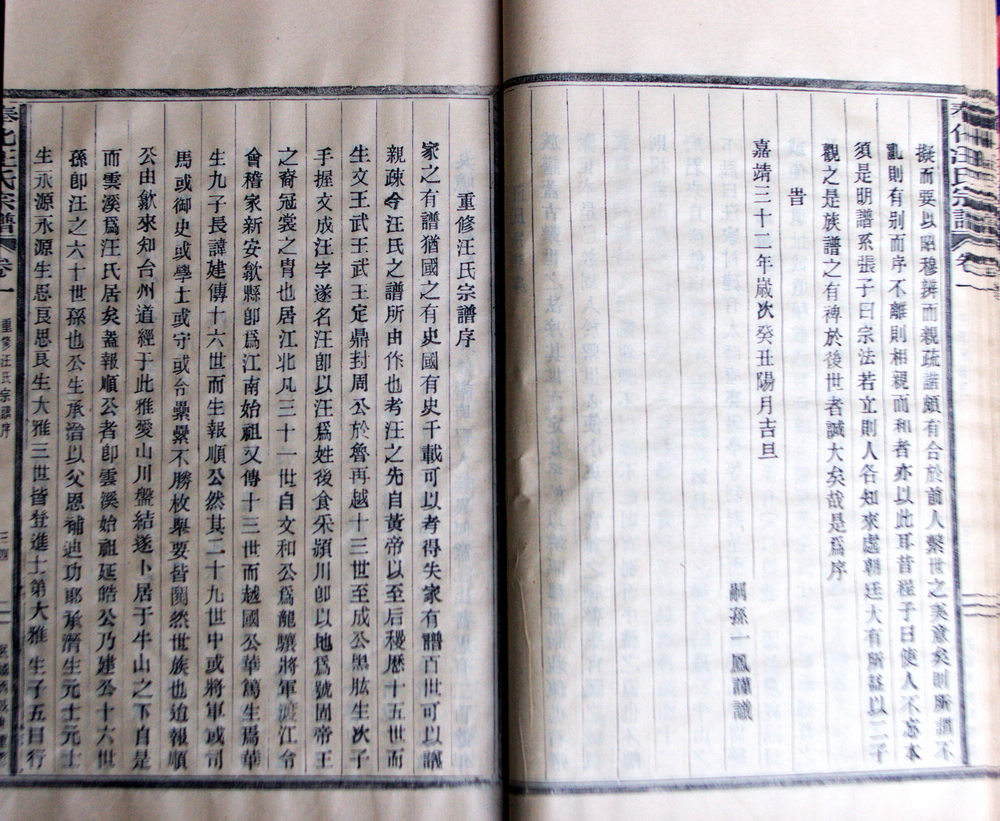 奉化汪氏宗譜 卷一
擬而要以昭穆辨而親疏諧頗有合於前人繫世之美意矣則所謂不
亂則有別而序不離則相親而和者亦以此耳昔程子曰使人不忘本
須是明譜系張子曰宗法若立則人各知來處朝廷大有所益以二子
觀之是族譜之有裨於後世者誠大矣哉是爲序
旹
嘉靖三十二年嵗次癸丑陽月吉旦
嗣孫一鳳謹識
重修汪氏宗譜序
家之有譜猶國之有史國有史千載可以考得失家有譜百世可以講
親疎今汪氏之譜所由作也考汪之先自黃帝以至后稷歷十五世而
生文王武王武王定鼎封周公於魯再越十三世至成公黑肱生次子
手握文成汪字遂名汪卽以汪爲姓後食采潁川卽以地爲號固帝王
之裔冠裳之胄也居江北凡三十一世自文和公爲龍驤將軍渡江令
會稽家新安歙縣卽爲江南始祖又傳十三世而越國公華篤生焉華
生九子長諱建傳十六世而生報順公然其二十九世中或將軍或司
馬或御史或學士或守或令纍纍不勝枚舉要皆閥然世族也迨報順
公由歙來知台州道經于此雅愛山川盤結遂卜居于牛山之下自是
而雲溪爲汪氏居矣蓋報順公者卽雲溪始祖延皓公乃建公十六世
孫卽汪之六十世孫也公生承治以父恩補迪功郎承濳生元士元士
生永源永源生思良思良生大雅三世皆登進士第大雅生子五曰行
奉化汪氏宗譜 卷一 重修汪氏宗譜序